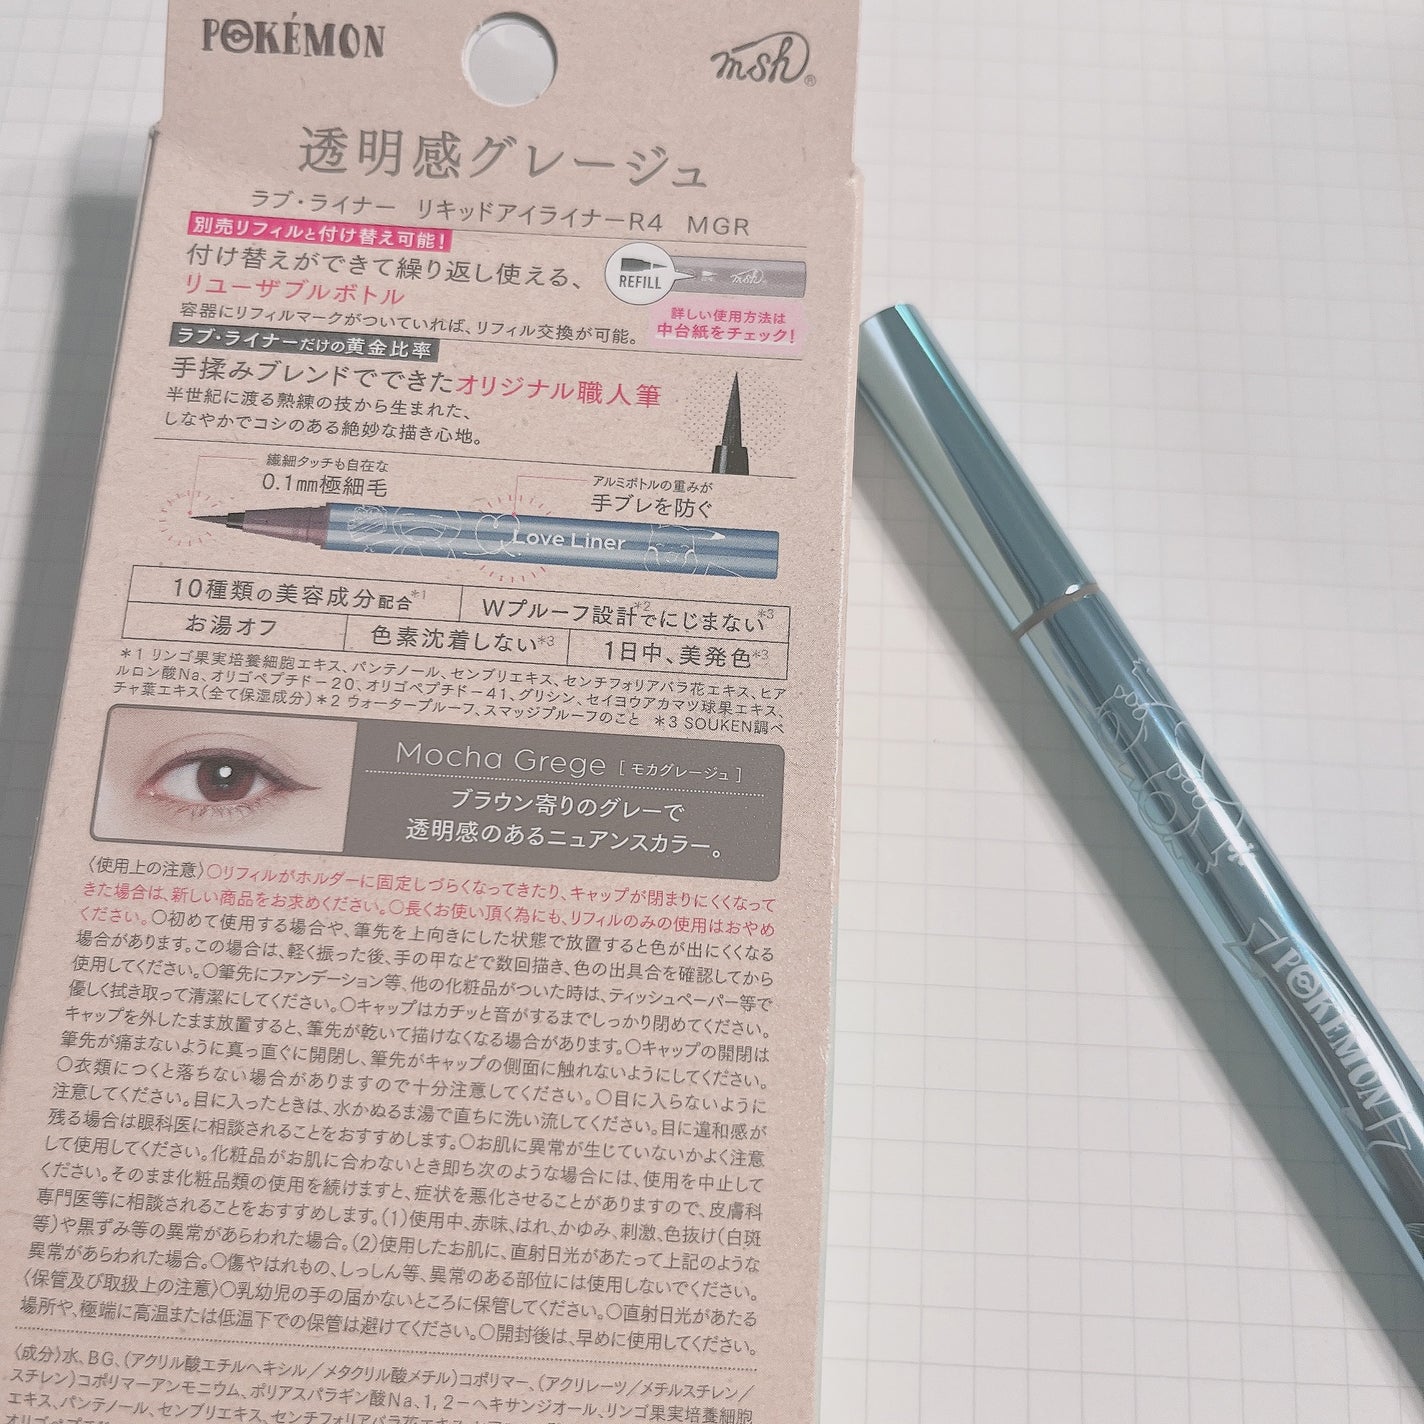 POKÉMON
msh®
透明感グレージュ
ラブ・ライナー リキッドアイライナーR4 MGR
別売リフィルと付け替え可能!
付け替えができて繰り返し使える、
リユーザブルボトル
容器にリフィルマークがついていれば、リフィル交換が可能。
REFILL
msh
詳しい使用方法は
中台紙をチェック!
ラブ・ライナーだけの黄金比率
手揉みブレンドでできたオリジナル職人筆
半世紀に渡る熟練の技から生まれた、
しなやかでコシのある絶妙な描き心地。
繊細タッチも自在な
0.1mm極細毛
アルミボトルの重みが
手ブレを防ぐ
Love Liner
10種類の美容成分配合*1
Wプルーフ設計*2でにじまない*3
お湯オフ
色素沈着しない*3
1日中、美発色*3
*1 リンゴ果実培養細胞エキス、パンテノール、センブリエキス、センチフォリアバラ花エキス、ヒア
ルロン酸Na、オリゴペプチド-20、オリゴペプチド-41、グリシン、セイヨウアカマツ球果エキス、
チャ葉エキス(全て保湿成分)*2 ウォータープルーフ、スマッジプルーフのこと *3 SOUKEN調べ
Mocha Grege [モカグレージュ]
ブラウン寄りのグレーで
透明感のあるニュアンスカラー。
〈使用上の注意〉○リフィルがホルダーに固定しづらくなってきたり、キャップが閉まりにくくなって
きた場合は、新しい商品をお求めください。○長くお使い頂く為にも、リフィルのみの使用はおやめ
ください。○初めて使用する場合や、筆先を上向きにした状態で放置すると色が出にくくなる
場合があります。この場合は、軽く振った後、手の甲などで数回描き、色の出具合を確認してから
使用してください。○筆先にファンデーション等、他の化粧品がついた時は、ティッシュペーパー等で
優しく拭き取って清潔にしてください。○キャップはカチッと音がするまでしっかり閉めてください。
キャップを外したまま放置すると、筆先が乾いて描けなくなる場合があります。○キャップの開閉は
筆先が痛まないように真っ直ぐに開閉し、筆先がキャップの側面に触れないようにしてください。
○衣類につくと落ちない場合がありますので十分注意してください。○目に入らないように
注意してください。目に入ったときは、水かぬるま湯で直ちに洗い流してください。目に違和感が
残る場合は眼科医に相談されることをおすすめします。○お肌に異常が生じていないかよく注意
して使用してください。化粧品がお肌に合わないとき即ち次のような場合には、使用を中止して
ください。そのまま化粧品類の使用を続けますと、症状を悪化させることがありますので、皮膚科
専門医等に相談されることをおすすめします。(1)使用中、赤味、はれ、かゆみ、刺激、色抜け(白斑
等)や黒ずみ等の異常があらわれた場合。(2)使用したお肌に、直射日光があたって上記のような
異常があらわれた場合。○傷やはれもの、しっしん等、異常のある部位には使用しないでください。
〈保管及び取扱上の注意〉○乳幼児の手の届かないところに保管してください。○直射日光があたる
場所や、極端に高温または低温下での保管は避けてください。○開封後は、早めに使用してください。
〈成分〉水、BG、(アクリル酸エチルヘキシル/メタクリル酸メチル)コポリマー、(アクリレーツ/メチルスチレン/
スチレン)コポリマーアンモニウム、ポリアスパラギン酸Na、1,2-ヘキサンジオール、リンゴ果実培養細胞
エキス、パンテノール、センブリエキス、センチフォリアバラ花エキス、
POKÉMON